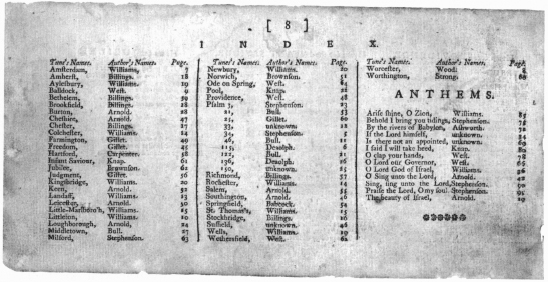 [ 8 ]
I N D E X.
Tune's Names. Author's Names. Page.
Amsterdam, Williams, 7
Amherst, Billings. 18
Aylesbury, Williams. 19
Baldock, West. 9
Bethelem, Billings. 39
Brookfield, Billings. 18
Burton, Arnold. 28
Cheshire, Arnold. 27
Chester, Billings. 17
Colchester, Williams. 14
Farmington, Gillet. 49
Freedom, Gillet. 45
Hartford, Carpenter. 58
Infant Saviour, Knap.
Jubilee, Brownson. 62
Judgment, Gillet. 56
Kingsbridge, Williams. 20
Keen, Arnold.
Landaff, Williams. 23
Leicester, Arnold.
Little-Marlboro's, Williams. 15
Littleton, Williams.
Loughborough, Arnold, 24
Middletown, Bull. 27
Milford, Stephenson. 63
Tune's Names. Author's Names. Page.
Newbury, Williams. 20
Norwich, Brownson. 51
Ode on Spring, West. 64
Pool, Knap. 22
Providence, West. 48
Psalm 3, Stephenson. 23
21, Bull. 53
25, Gillet. 60
33, unknown.
34, Stephenson.
46, Bull.
115, Deaolph. 6
122, Bull. 21
136, Deaolph. 26
150, unknown. 25
Richmond, Billings. 37
Rochester, Williams. 14
Salem, Arnold. 55
Southington, Arnold. 46
Springfield, Babcock. 54
St. Thomas's, Williams. 15
Stockbridge, Billings. 16
Suffield, unknown. 46
Wells, Williams. 19
Wethersfield, West. 62
Tune's Names. Author's Names. Page.
Worcester, Wood. 8
Worthington, Strong. 66
ANTHEMS.
Arise shine, O Zion, Williams. 85
Behold I bring you tidings, Stephenson.
By the rivers of Babylon, Ashworth. 72
If the Lord himself, unknown. 34
Is there not an appointed, unknown. 69
I said I will take heed, Knap. 80
O clap your hands, West. 78
O Lord our Governor, West. 66
O Lord God of Israel, Williams. 26
O Sing unto the Lord, Arnold. 42
Sing, sing unto the Lord, Stephenson. 90
Praise the Lord, O my soul Stephenson.
The beauty of Israel, Arnold. 29